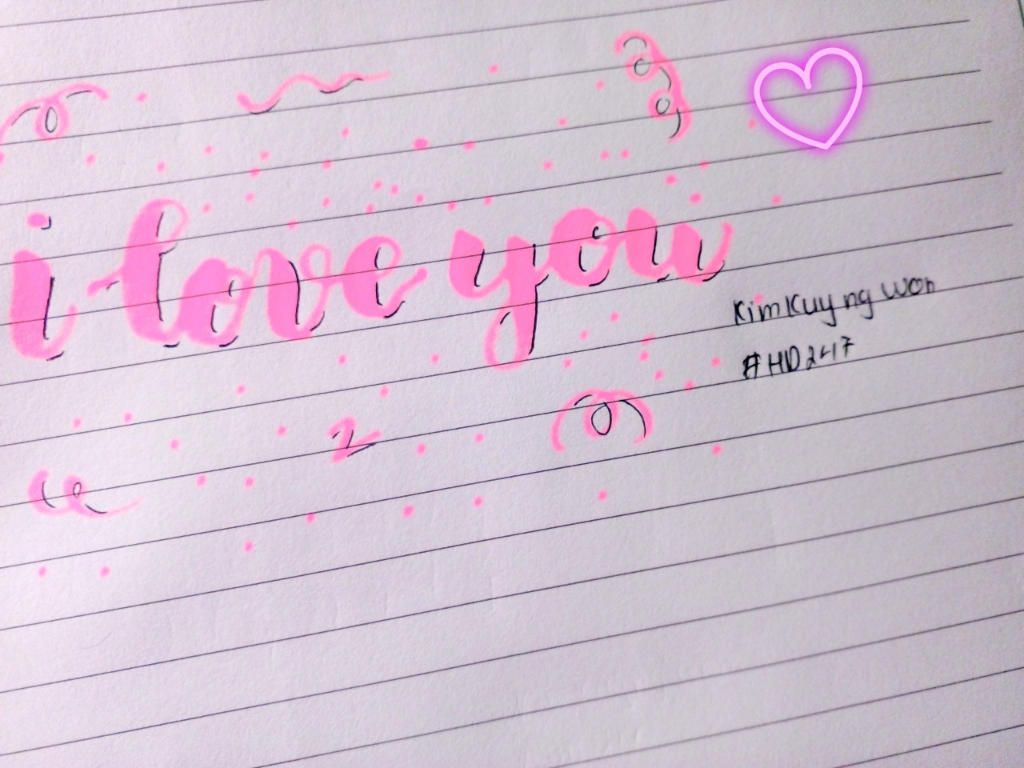 i love you
Kim Kuyng Won
#HD2417